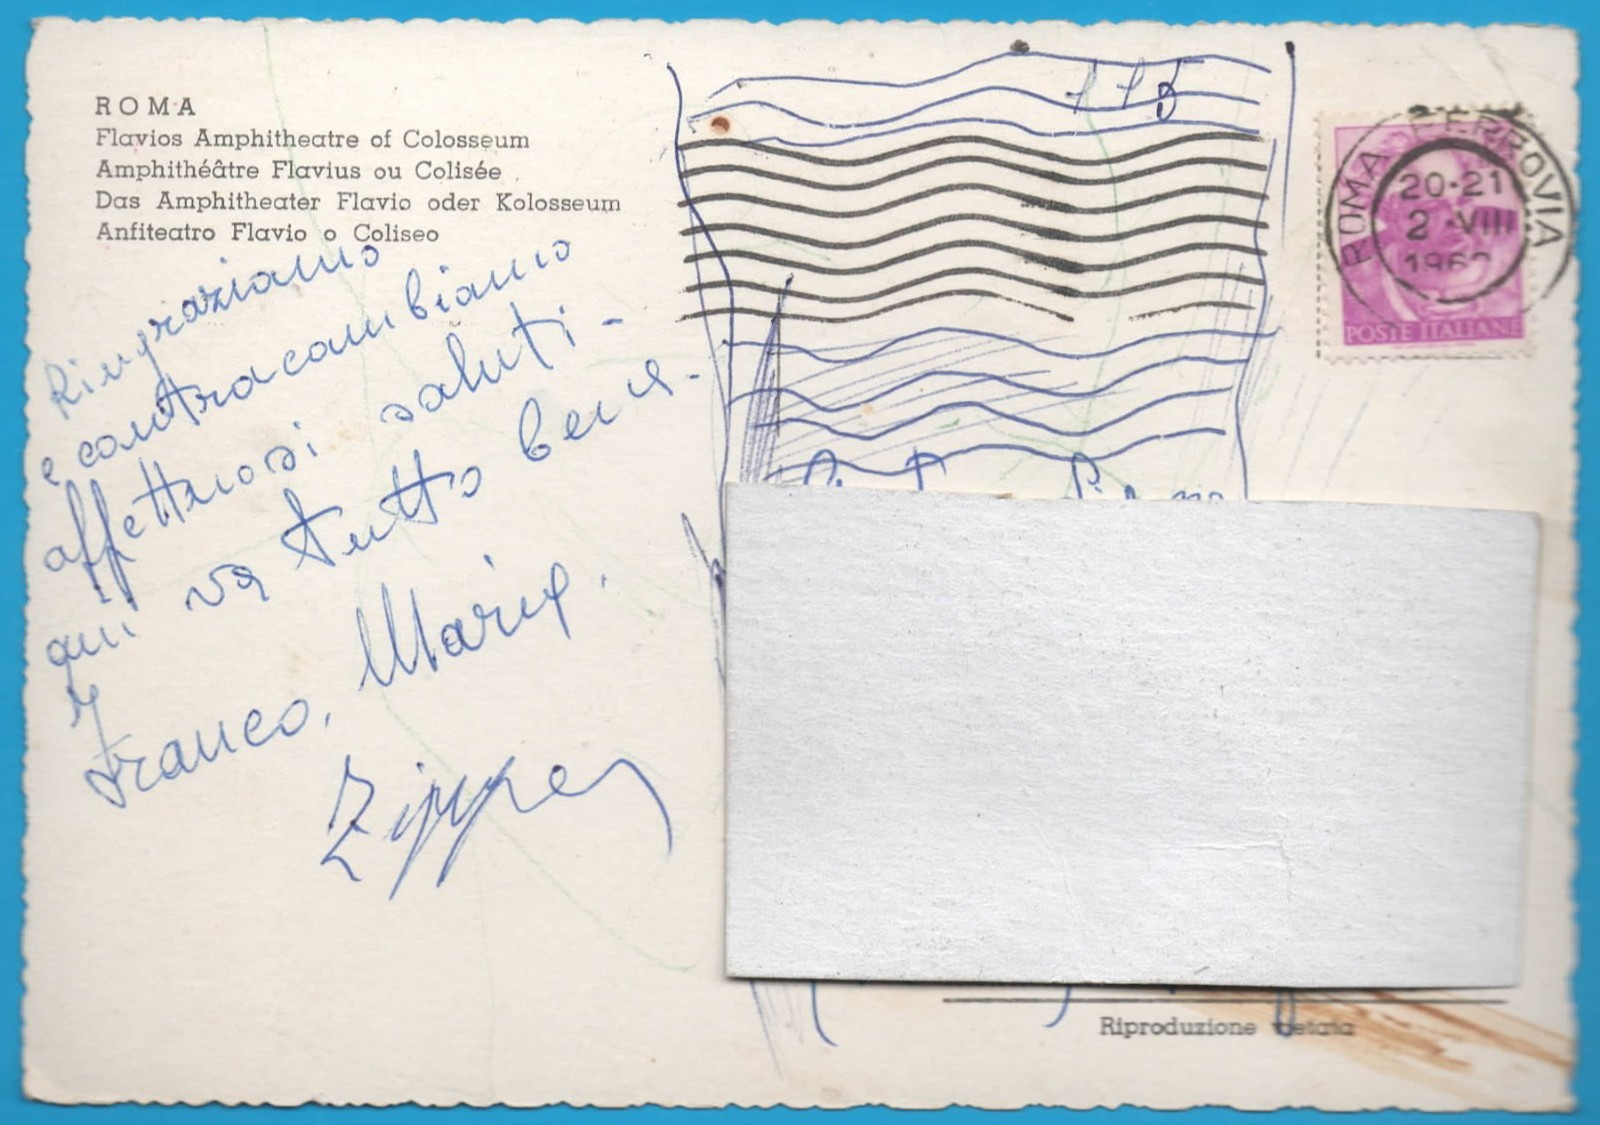 ROMA
Flavios Amphitheatre of Colosseum
Amphithéâtre Flavius ou Colisée
Das Amphitheater Flavio oder Kolosseum
Anfiteatro Flavio o Coliseo
Ringraziamo
e contracambiamo
affettuosi saluti -
qui va tutto bene -
Franco, Maria.
115
ROMA FERROVIA
20-21
2 · VIII
POSTE ITALIANE
Riproduzione vietata